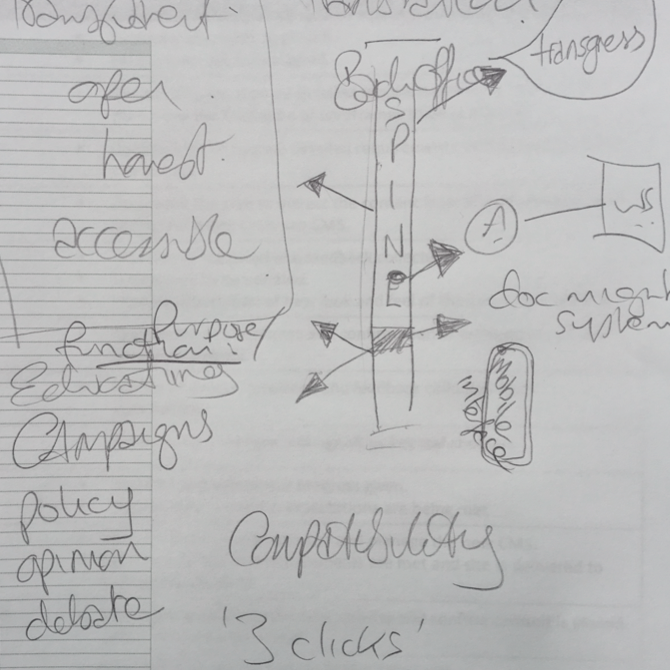 Transparent.
open
honest.
accessible
Purpose/
function:
Educating
Campaigns
policy
opinion
debate
Back Office
SPINE
transgress
A
WS
doc mgnt
system
Compatibility
'3 clicks'